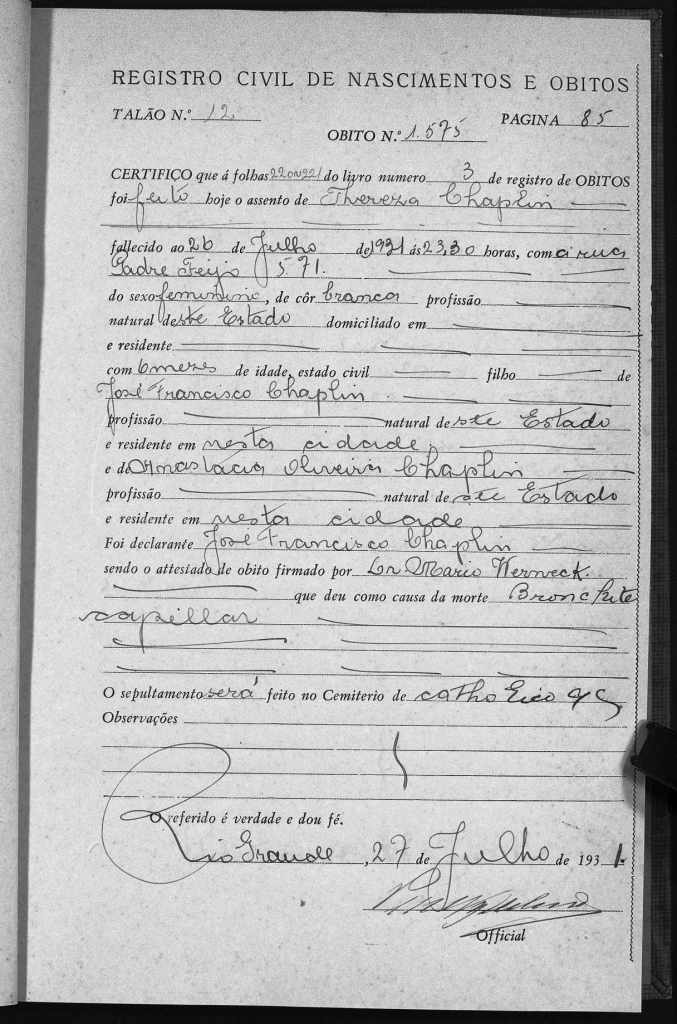 REGISTRO CIVIL DE NASCIMENTOS E OBITOS
TALÃO N.º 12
PAGINA 85
OBITO N.º 1.575
CERTIFICO que á folhas 220 221 do livro numero 3 de registro de OBITOS
foi feito hoje o assento de Thereza Chaplin
fallecido ao 26 de Julho de 1931 ás 23,30 horas, com a rua
Padre Feijo 571.
do sexo feminino, de côr branca profissão
natural deste Estado domiciliado em
e residente
com 6 mezes de idade, estado civil filho de
José Francisco Chaplin
profissão natural deste Estado
e residente em nesta cidade
e de Anastacia Oliveira Chaplin
profissão natural deste Estado
e residente em nesta cidade
Foi declarante José Francisco Chaplin
sendo o attestado de obito firmado por Dr Mario Werneck.
que deu como causa da morte Bronchite
capillar
O sepultamento será feito no Cemiterio de catholico
Observações
O referido é verdade e dou fé.
Rio Grande, 27 de Julho de 1931.
Official